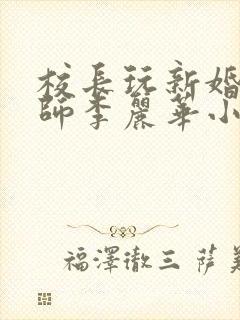 校長玩新婚
師李麗華小
福澤徹三 薩美